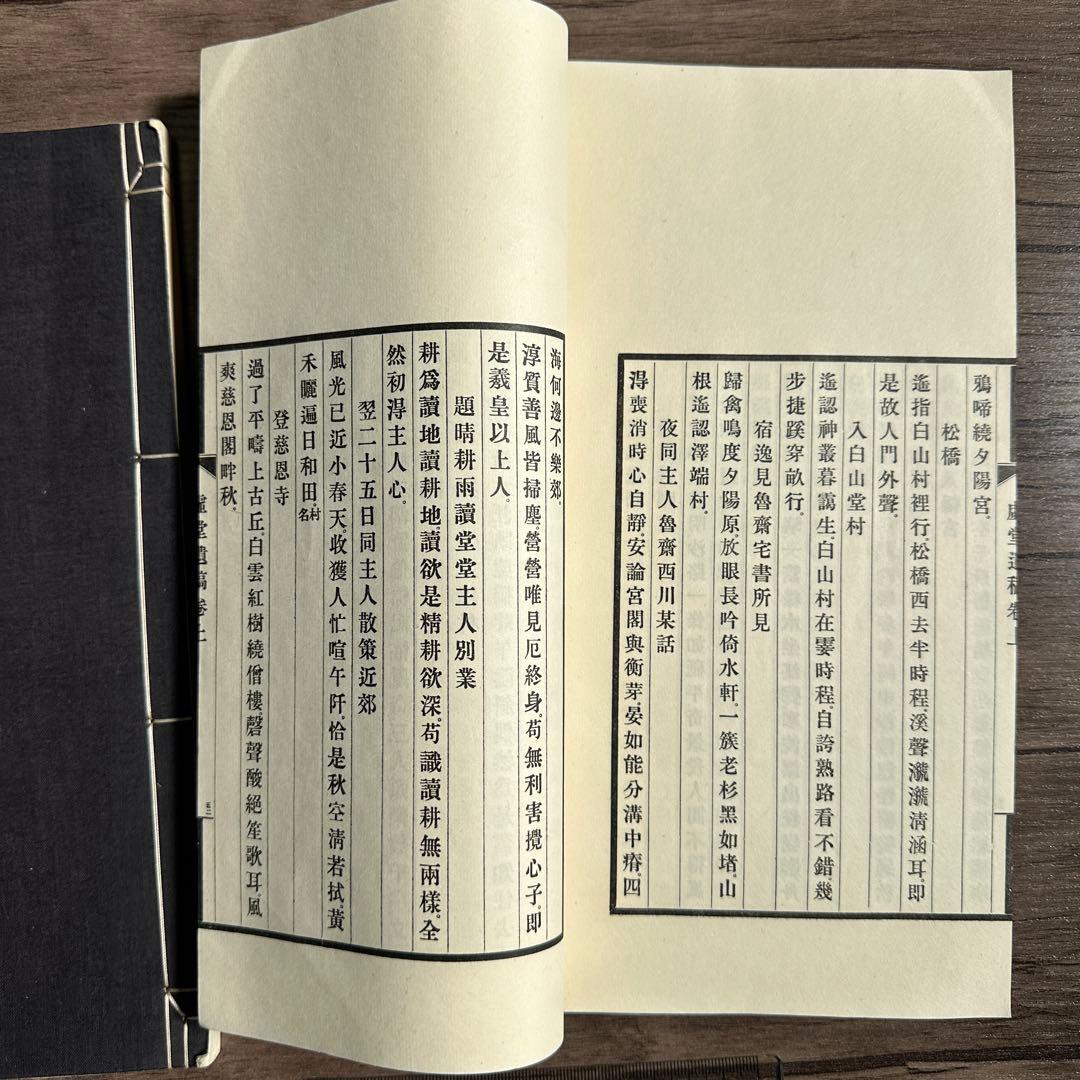 鴉啼繞夕陽宮。
松橋
遙指白山村裡行。松橋西去半時程。溪聲瀧瀧淸涵耳。即
是故人門外聲。
入白山堂村
遙認神叢暮靄生。白山村在霎時程。自誇熟路看不錯。幾
步捷蹊穿畝行。
宿逸見魯齋宅書所見
歸禽鳴度夕陽原。放眼長吟倚水軒。一簇老杉黑如堵。山
根遙認澤端村。
夜同主人魯齋西川某話
淂喪消時心自靜。安論宮閣與衡茅。晏如能分溝中瘠。四
海何邊不樂郊。
淳質善風皆掃塵。營營唯見厄終身。苟無利害攪心子。即
是羲皇以上人。
題晴耕雨讀堂堂主人別業
耕爲讀地讀耕地。讀欲是精耕欲深。苟識讀耕無兩樣。全
然初淂主人心。
翌二十五日同主人散策近郊
風光已近小春天。收獲人忙喧午阡。恰是秋空淸若拭。黃
禾曬遍日和田。村名
登慈恩寺
過了平疇上古丘。白雲紅樹繞僧樓。磬聲酸絕笙歌耳。風
爽慈恩閣畔秋。
虛堂遺稿卷